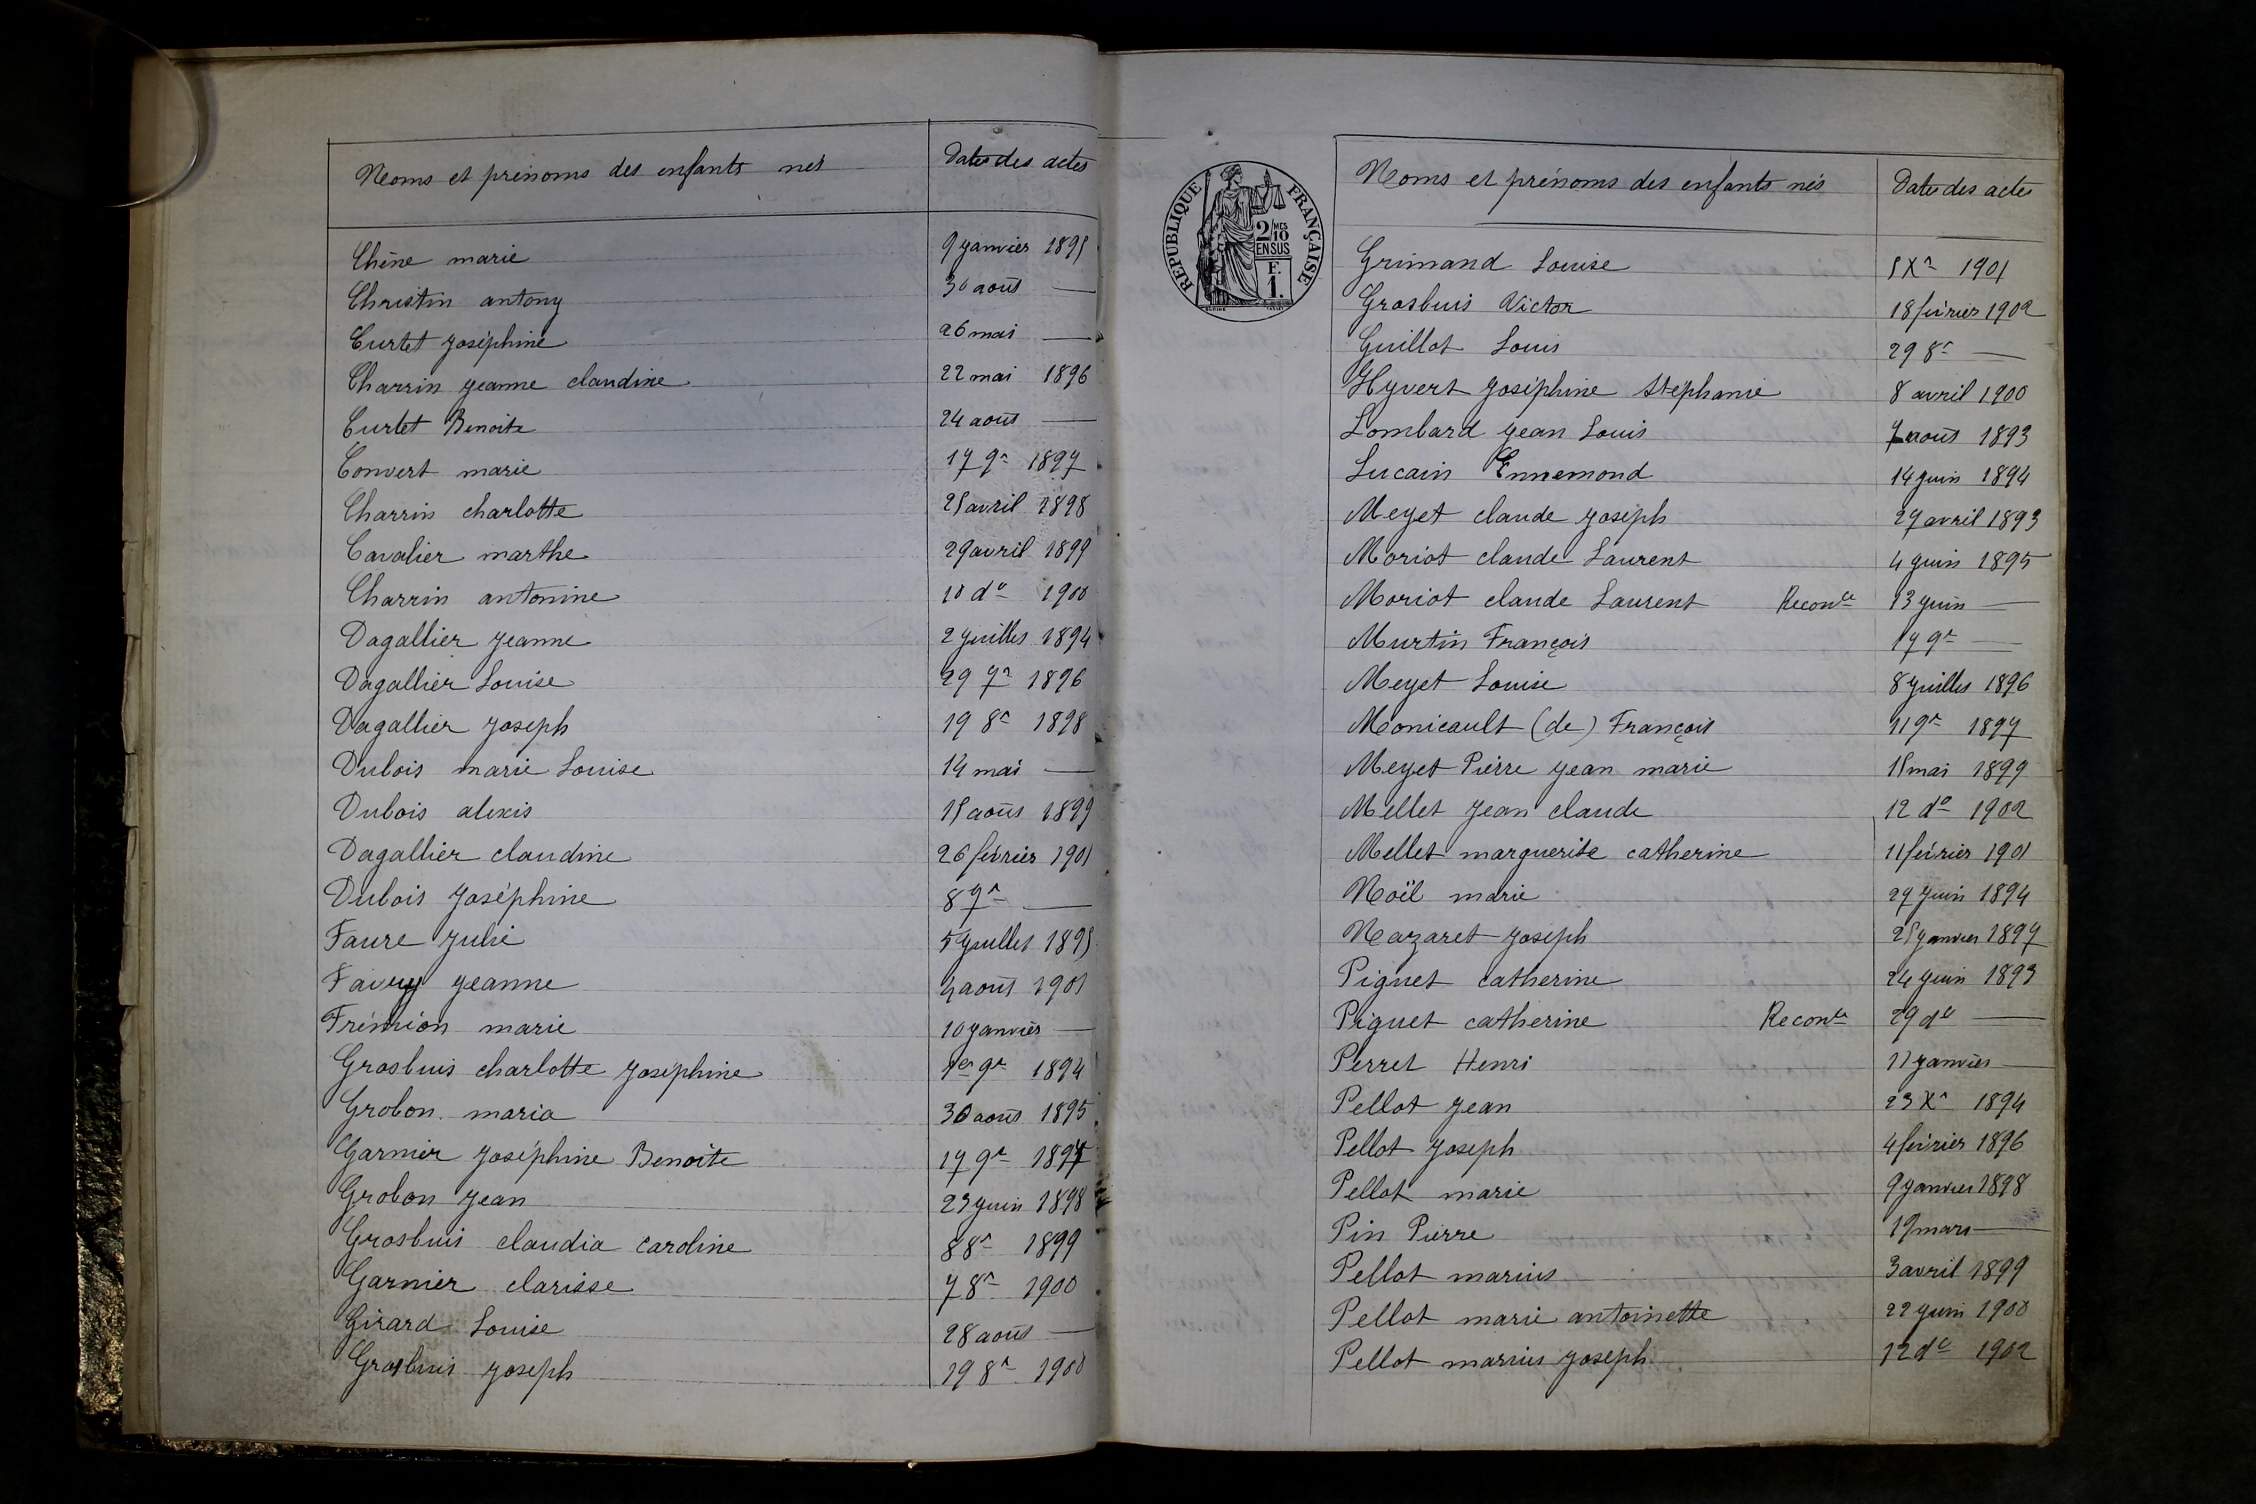 Noms et prénoms des enfants nés Dates des actes
Chêne marie 9 janvier 1895
Christin antony 30 août —
Curtet Joséphine 26 mai —
Charrin jeanne claudine 22 mai 1896
Curtet Benoite 24 août —
Convert marie 17 9re 1897
Charrin charlotte 25 avril 1898
Cavalier marthe 29 avril 1899
Charrin antonine 10 do 1900
Dagallier jeanne 2 juillet 1894
Dagallier Louise 29 7re 1896
Dagallier joseph 19 8re 1898
Dubois marie Louise 14 mai —
Dubois alexis 15 août 1899
Dagallier claudine 26 février 1901
Dubois Joséphine 8 7re —
Faure Julie 5 juillet 1895
Favery jeanne 4 août 1901
Frémion marie 10 janvier —
Grosbuis charlotte Joséphine 1er 9re 1894
Grobon maria 30 août 1895
Garnier Joséphine Benoîte 17 9re 1897
Grobon jean 23 juin 1898
Grosbuis claudia caroline 8 8re 1899
Garnier clarisse 7 8re 1900
Girard Louise 28 août —
Grosbuis joseph 19 8re 1900
REPUBLIQUE FRANÇAISE
2/10 MES
EN SUS
F.
1.
Noms et prénoms des enfants nés Dates des actes
Grimand Louise 5 Xre 1901
Grosbuis Victor 18 février 1902
Guillot Louis 29 8re —
Hyvert Joséphine Stéphanie 8 avril 1900
Lombard jean Louis 7 août 1893
Lucain Ennemond 14 juin 1894
Meyet claude joseph 27 avril 1893
Moriot claude Laurent 4 juin 1895
Moriot claude Laurent Reconce 13 juin —
Murtin François 17 9re —
Meyet Louise 8 juillet 1896
Monicault (de) François 11 9re 1897
Meyet Pierre jean marie 15 mai 1899
Mellet Jean claude 12 do 1902
Mellet marguerite catherine 11 février 1901
Noël marie 27 juin 1894
Nazaret Joseph 25 janvier 1897
Piguet catherine 24 juin 1893
Piguet catherine Reconce 29 do —
Perret Henri 11 janvier —
Pellot Jean 23 Xre 1894
Pellot Joseph 4 février 1896
Pellot marie 9 janvier 1898
Pin Pierre 19 mars —
Pellot marius 3 avril 1899
Pellot marie antoinette 22 juin 1900
Pellot marius joseph 12 do 1902